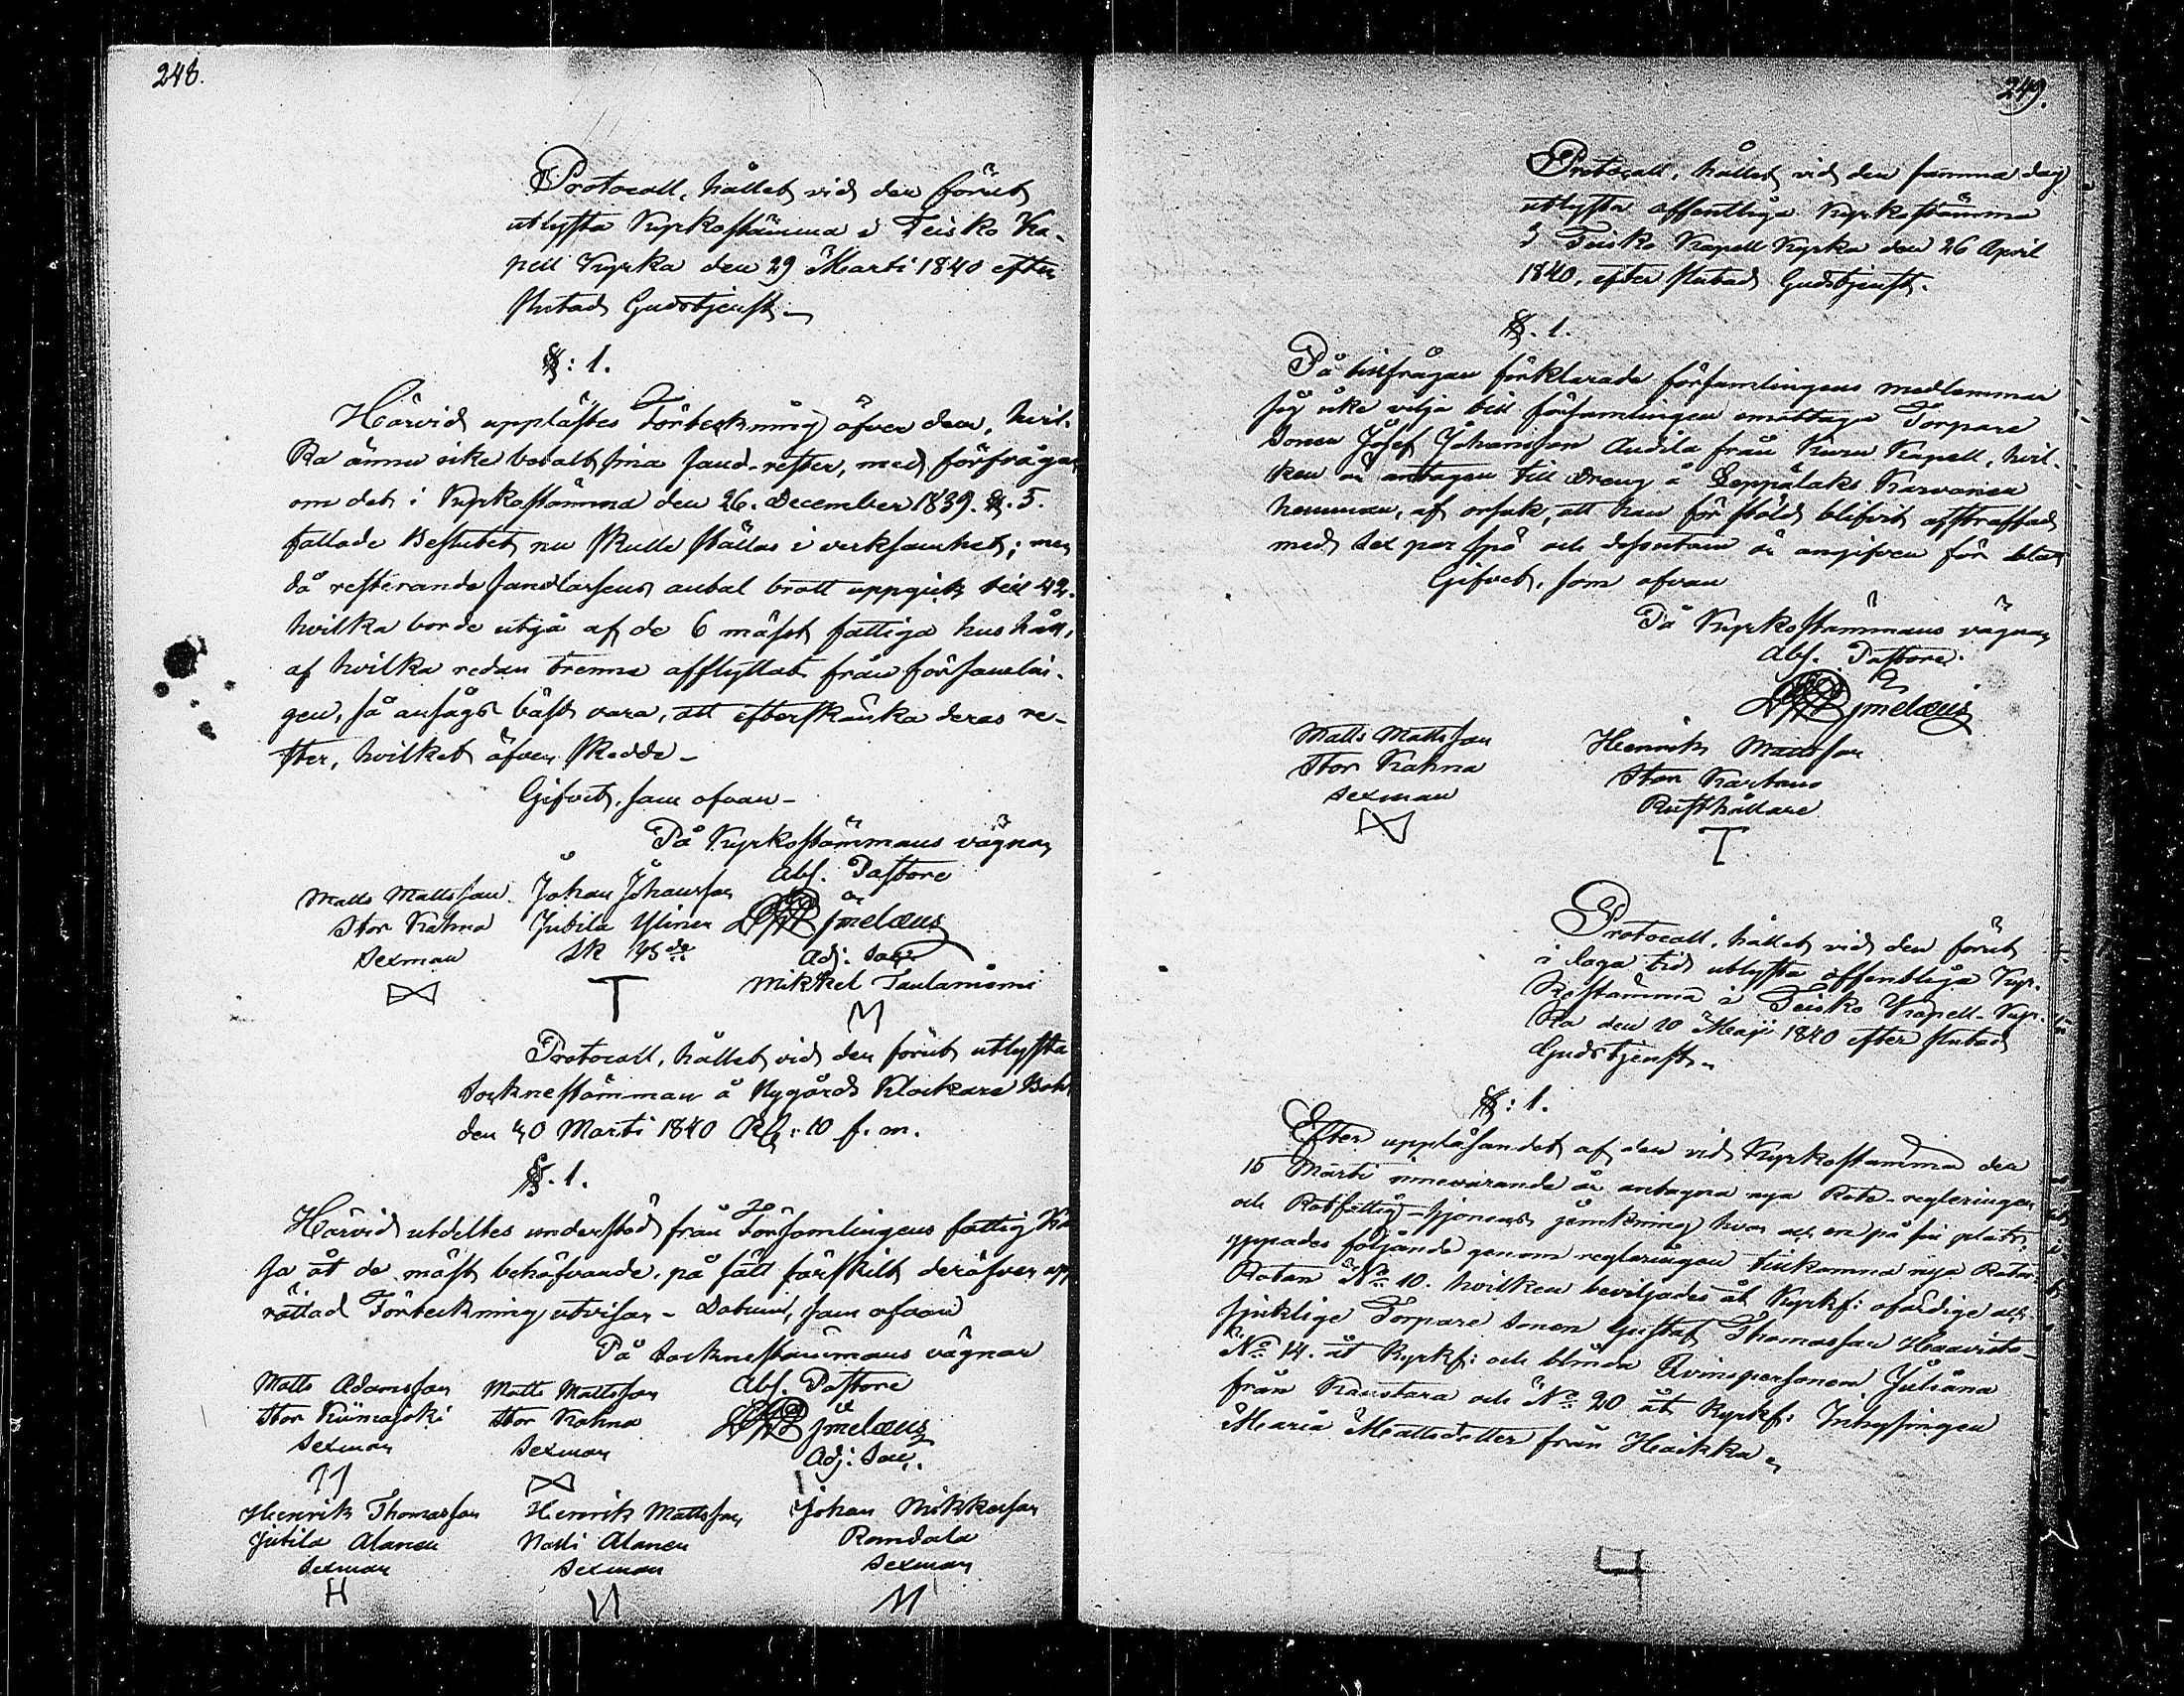 248.
Protocoll, hållet vid den förut
utlysta Kyrkostämma i Teisko Ka-
pell Kyrka den 29 Marti 1840 efter
slutad Gudstjenst.
§: 1.
Härvid upplästes Förteckning öfver dem, hvil-
ka ännu icke betalt sina sand-rester, med förfrågan
om det i Kyrkostämma den 26. December 1839. §. 5.
fattade Beslutet nu skulle ställas i verksamhet; men
då resterande sandlassens antal blott uppgick till 42.
hvilka borde utgå af de 6 mäst fattiga hushåll,
af hvilka redan trenne afflyttat från församlin-
gen, så ansågs bäst vara, att efterskänka deras re-
ster, hvilket äfven skedde –
Gifvet, som ofvan –
På Kyrkostämmans vägnar
Abs. Pastore
Matts Mattsson Johan Johansson
Stor Kahna Jutila Ylinen
Sexman
Adj: Sac.
Mikkel Taulaniemi
Protocoll, hållet vid den förut utlysta
Socknestämman å Nygårds Klockare Bohl
den 30 Marti 1840 Kl: 10 f. m.
§. 1.
Härvid utdeltes understöd från Församlingens fattig Kas-
sa åt de mäst behöfvande, på sätt särskilt deröfver upp
rättad Förteckning utvisar – Datum, som ofvan
På Socknestämmans vägnar
Matts Adamsson Matts Mattsson Abs. Pastore
Stor Kiimajoki Stor Kahna
Sexman Sexman Adj: Sac.
Henrik Thomasson Henrik Mattsson Johan Mikkelsson
Jutila Alanen Alanen
Sexman Sexman Sexman
249.
Protocoll, hållet vid den samma dag
utlysta offentliga Kyrkostämma
i Teisko Kapell Kyrka den 26 April
1840, efter slutad Gudstjenst.
§. 1.
På tillfrågan förklarade församlingens medlemmar
sig icke vilja till församlingen emottaga Torpare
Sonen Josef Johansson Andila från Kuru Kapell, hvil-
ken är antagen till Dreng å Leppälaks Karvonen
hemman, af orsak, att han för stöld blifvit afstraffad
med sex par spö och dessutom är angifven för
Gifvet, som ofvan
På Kyrkostämmans vägnar
Abs. Pastore.
Matts Mattsson Henrik Mattsson
Stor Kahna Stor Kartano
Sexman Rusthållare
Protocoll, hållet vid den förut
i laga tid utlysta offentliga Kyr-
kostämma i Teisko Kapell-Kyr-
ka den 10 Maji 1840 efter slutad
Gudstjenst.
§: 1.
Efter uppläsandet af den vid Kyrkostämma den
15 Marti innevarande år antagna nya Rote-regleringen
och Rotfattig-hjonens jemkning hvar och en på sin plats,
följande genom regleringen tillkomna nya Rotar:
Rotan No 10. hvilken beviljades åt Kyrkf: ofärdige och
sjuklige Torpare Sonen Gustaf Thomasson Haavisto –
No 14. åt Kyrkf: och blinda Qvinspersonen Juliana
från Kaustara och No 20 åt Kyrkf: Inhysingen
Maria Mattsdotter från Heikka.